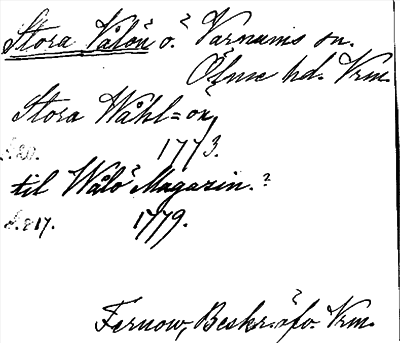 Stora Vålön ö. Varnums sn.
Ölme hd. Vrm.
Stora Wåhl=ön
1773.
til Wålö Magazin.
s. 217. 1779.
Fernow, Beskr. öfv. Vrm.